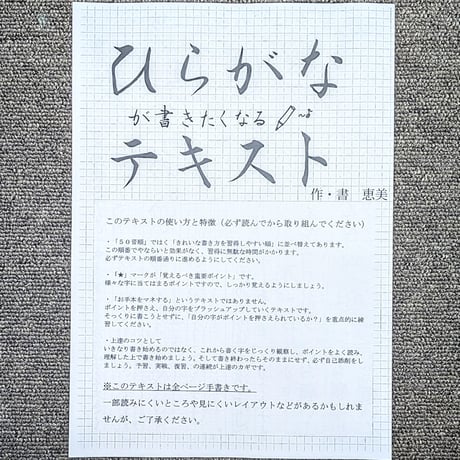 ひらがな
が書きたくなる
テキスト
作・書 恵美
このテキストの使い方と特徴（必ず読んでから取り組んでください）
・「５０音順」ではく「きれいな書き方を習得しやすい順」に並べ替えてあります。
この順番でやらないと効果がなく、習得に無駄な時間がかかります。
必ずテキストの順番通りに進めるようにしてください。
・「★」マークが「覚えるべき重要ポイント」です。
様々な字に当てはまるポイントですので、しっかり覚えるようにしましょう。
・「お手本をマネする」というテキストではありません。
ポイントを押さえ、自分の字をブラッシュアップしていくテキストです。
そっくりに書こうとせずに、「自分の字がポイントを押さえられているか？」を重点的に練
習してください。
・上達のコツとして
いきなり書き始めるのではなく、これから書く字をじっくり観察し、ポイントをよく読み、
理解した上で書き始めましょう。そして書き終わったらそのままにせず、必ず自己添削をし
ましょう。予習、実戦、復習、の連続が上達のカギです。
※このテキストは全ページ手書きです。
一部読みにくいところや見にくいレイアウトなどがあるかもしれま
せんが、ご了承ください。